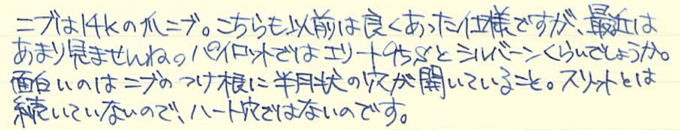 ニブは14kの爪ニブ。こちらも以前は良くあった仕様ですが、最近は
あまり見ませんね。パイロットではエリート95Sとシルバーンくらいでしょうか。
面白いのはニブのつけ根に半月状の穴が開いていること。スリットとは
続いていないので、ハート穴ではないのです。